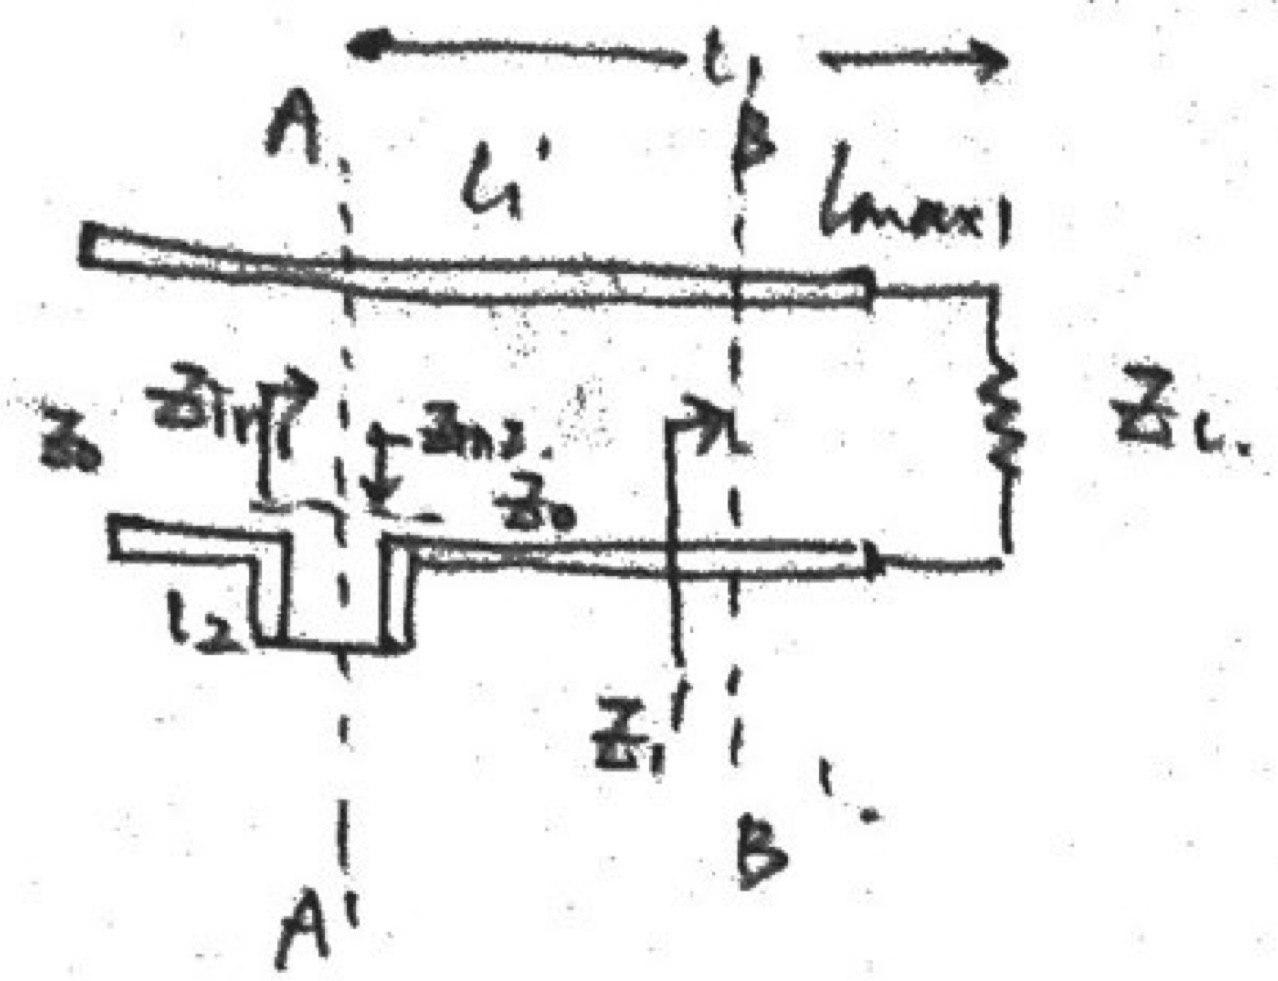 l1
A B
l1' lmax1
Zin1 Zin2
Z0 Z0 ZL.
l2
Z1'
B'
A'